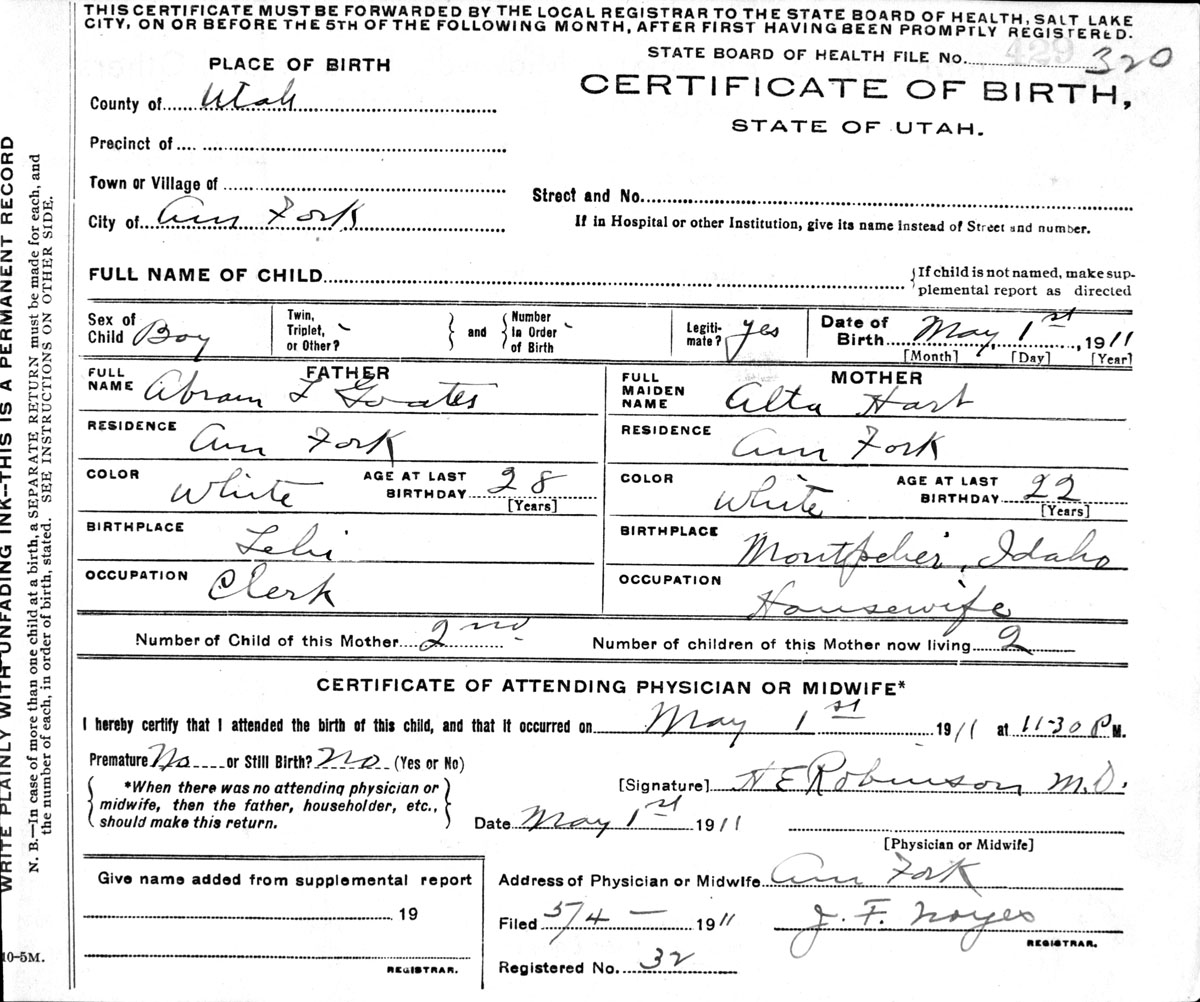 THIS CERTIFICATE MUST BE FORWARDED BY THE LOCAL REGISTRAR TO THE STATE BOARD OF HEALTH, SALT LAKE
CITY, ON OR BEFORE THE 5TH OF THE FOLLOWING MONTH, AFTER FIRST HAVING BEEN PROMPTLY REGISTERED.
STATE BOARD OF HEALTH FILE NO. 320
429
PLACE OF BIRTH
CERTIFICATE OF BIRTH,
STATE OF UTAH.
County of Utah
Precinct of
Town or Village of
Street and No.
City of Am Fork
If in Hospital or other Institution, give its name instead of Street and number.
FULL NAME OF CHILD
{If child is not named, make sup-
plemental report as directed
Sex of Child Boy
Twin, Triplet, or Other?
and
Number In Order of Birth
Legiti-mate? yes
Date of Birth May 1st, 1911
[Month] [Day] [Year]
FATHER
FULL NAME Abram L Goates
MOTHER
FULL MAIDEN NAME Alta Hart
RESIDENCE Am Fork
RESIDENCE Am Fork
COLOR White AGE AT LAST BIRTHDAY 28
[Years]
COLOR White AGE AT LAST BIRTHDAY 22
[Years]
BIRTHPLACE Lehi
BIRTHPLACE Montpelier, Idaho
OCCUPATION Clerk
OCCUPATION Housewife
Number of Child of this Mother 2nd
Number of children of this Mother now living 2
CERTIFICATE OF ATTENDING PHYSICIAN OR MIDWIFE*
I hereby certify that I attended the birth of this child, and that it occurred on May 1st 1911 at 11-30 P M.
Premature No or Still Birth? No (Yes or No)
*When there was no attending physician or
midwife, then the father, householder, etc.,
should make this return.
[Signature] H E Robinson M.D.
Date May 1st 1911
[Physician or Midwife]
Give name added from supplemental report
19
REGISTRAR.
Address of Physician or Midwife Am Fork
Filed 5/4 - 1911 J. F. Noyes
REGISTRAR.
Registered No. 32
WRITE PLAINLY WITH UNFADING INK—THIS IS A PERMANENT RECORD
N. B.—In case of more than one child at a birth, a SEPARATE RETURN must be made for each, and
the number of each, in order of birth, stated. SEE INSTRUCTIONS ON OTHER SIDE.
10-5M.